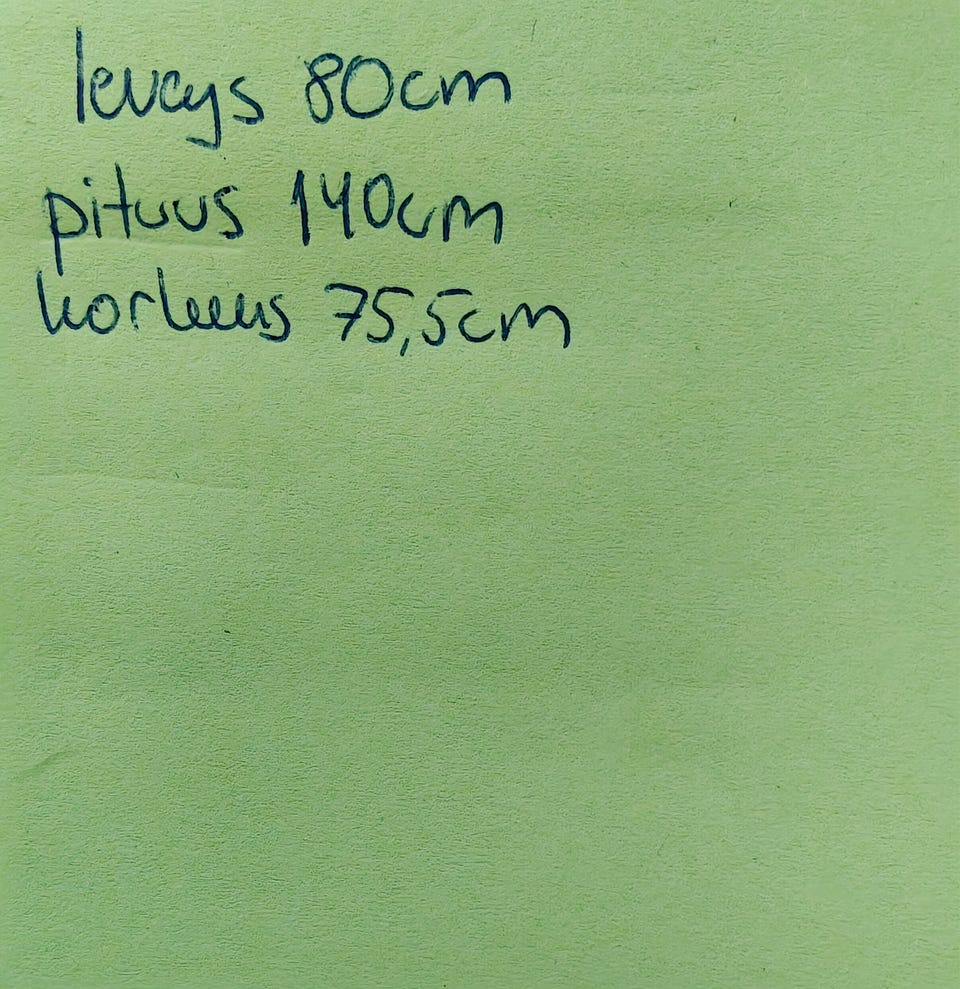 leveys 80cm
pituus 140cm
korkeus 75,5cm